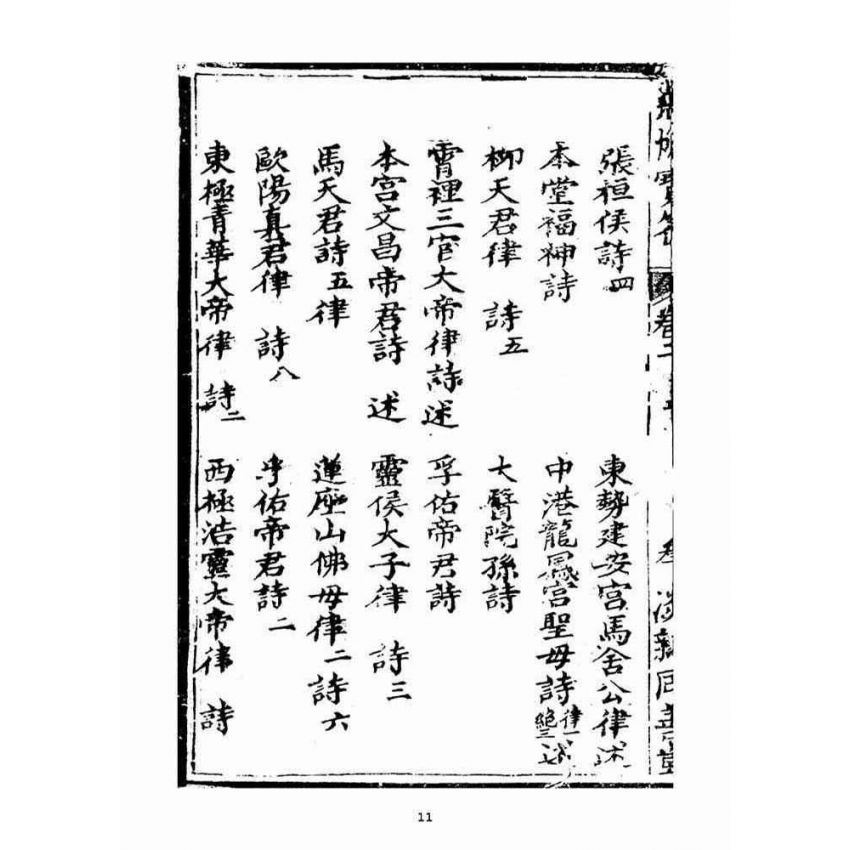 卷二
張桓侯詩四 東勢建安宮馬舍公律述
本堂福神詩 中港龍鳳宮聖母詩律一絕三述
柳天君律 詩五 大醫院孫詩
霄裡三官大帝律詩述 孚佑帝君詩
本宮文昌帝君詩 述 靈侯大子律 詩三
馬天君詩五律 蓮座山佛母律二詩六
歐陽真君律 詩八 孚佑帝君詩二
東極青華大帝律 詩二 西極浩靈大帝律 詩
11